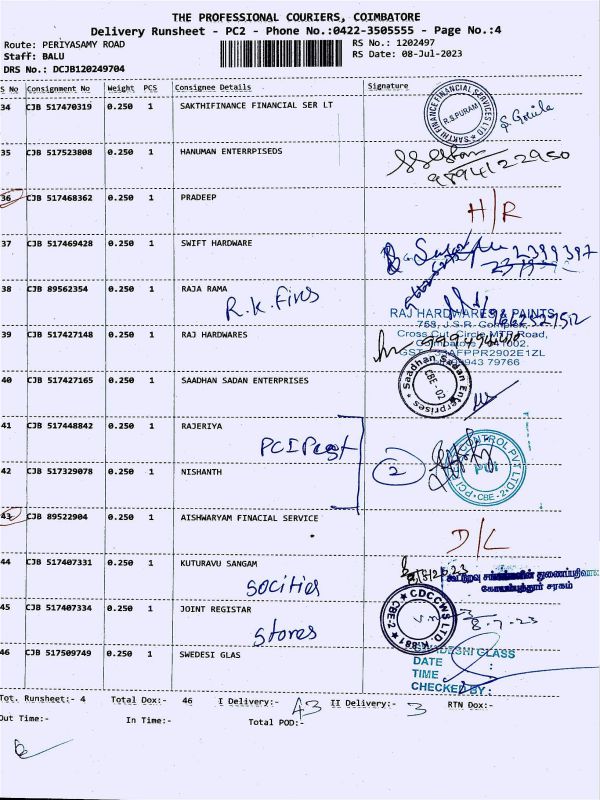 THE PROFESSIONAL COURIERS, COIMBATORE
Delivery Runsheet - PC2 - Phone No.:0422-3505555 - Page No.:4
Route: PERIYASAMY ROAD RS No.: 1202497
Staff: BALU RS Date: 08-Jul-2023
DRS No.: DCJB120249704
S No Consignment No Weight PCS Consignee Details Signature
34 CJB 517470319 0.250 1 SAKTHIFINANCE FINANCIAL SER LT
SAKTHI FINANCE FINANCIAL SERVICES LTD
R.S.PURAM
35 CJB 517523808 0.250 1 HANUMAN ENTERRPISEDS
9894122950
36 CJB 517468362 0.250 1 PRADEEP
H/R
37 CJB 517469428 0.250 1 SWIFT HARDWARE
2399397
38 CJB 89562354 0.250 1 RAJA RAMA
R.K. Fires
RAJ HARDWARES & PAINTS
758, J.S.R. Complex,
Cross Cut Circle, MTP Road,
Coimbatore - 641002.
39 CJB 517427148 0.250 1 RAJ HARDWARES
40 CJB 517427165 0.250 1 SAADHAN SADAN ENTERPRISES
Saadhan Sadan Enterprises
CBE - 02
41 CJB 517448842 0.250 1 RAJERIYA
PCI Pest
2
PCI PEST CONTROL PVT LTD
PCI
CBE-2
42 CJB 517329078 0.250 1 NISHANTH
43 CJB 89522904 0.250 1 AISHWARYAM FINACIAL SERVICE
D/L
44 CJB 517407331 0.250 1 KUTURAVU SANGAM
socities
கூட்டுறவு சங்கங்களின் துணைப்பதிவாளர்
கோயம்புத்தூர் சரகம்
CDCCWS LTD K881
CBE-2
45 CJB 517407334 0.250 1 JOINT REGISTAR
stores
8-7-23
46 CJB 517509749 0.250 1 SWEDESI GLAS
SWADESHI GLASS
DATE :
TIME :
CHECKED BY :
Tot. Runsheet:- 4 Total Dox:- 46 I Delivery:- 43 II Delivery:- 3 RTN Dox:-
Out Time:- In Time:- Total POD:-